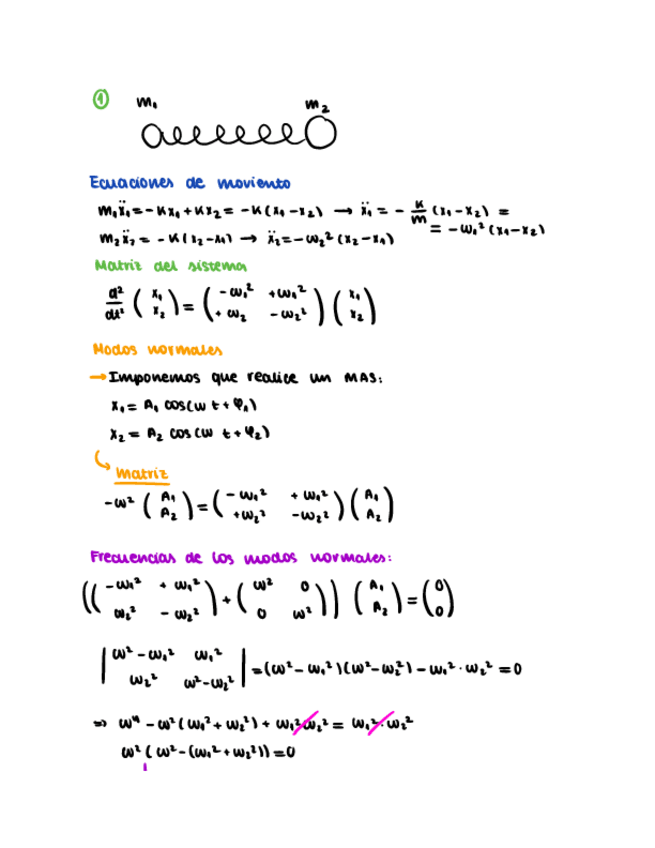 ① m₁ m₂
Ecuaciones de moviento
m₁ẍ₁ = -Kx₁ + Kx₂ = -K(x₁ - x₂) → ẍ₁ = - K/m (x₁ - x₂) =
= -ω₁² (x₁ - x₂)
m₂ẍ₂ = -K(x₂ - x₁) → ẍ₂ = -ω₂² (x₂ - x₁)
Matriz del sistema
d²/dt² (x₁ x₂) = (-ω₁² +ω₁² +ω₂ -ω₂²) (x₁ x₂)
Modos normales
→ Imponemos que realice un MAS:
x₁ = A₁ cos(ω t + φ₁)
x₂ = A₂ cos(ω t + φ₂)
↪ matriz
-ω² (A₁ A₂) = (-ω₁² +ω₁² +ω₂² -ω₂²) (A₁ A₂)
Frecuencias de los modos normales:
((-ω₁² +ω₁² ω₂² -ω₂²) + (ω² 0 0 ω²)) (A₁ A₂) = (0 0)
|ω² - ω₁² ω₁² ω₂² ω² - ω₂²| = (ω² - ω₁²)(ω² - ω₂²) - ω₁² · ω₂² = 0
⇒ ω⁴ - ω² (ω₁² + ω₂²) + ω₁² ω₂² = ω₁² · ω₂²
ω² (ω² - (ω₁² + ω₂²)) = 0